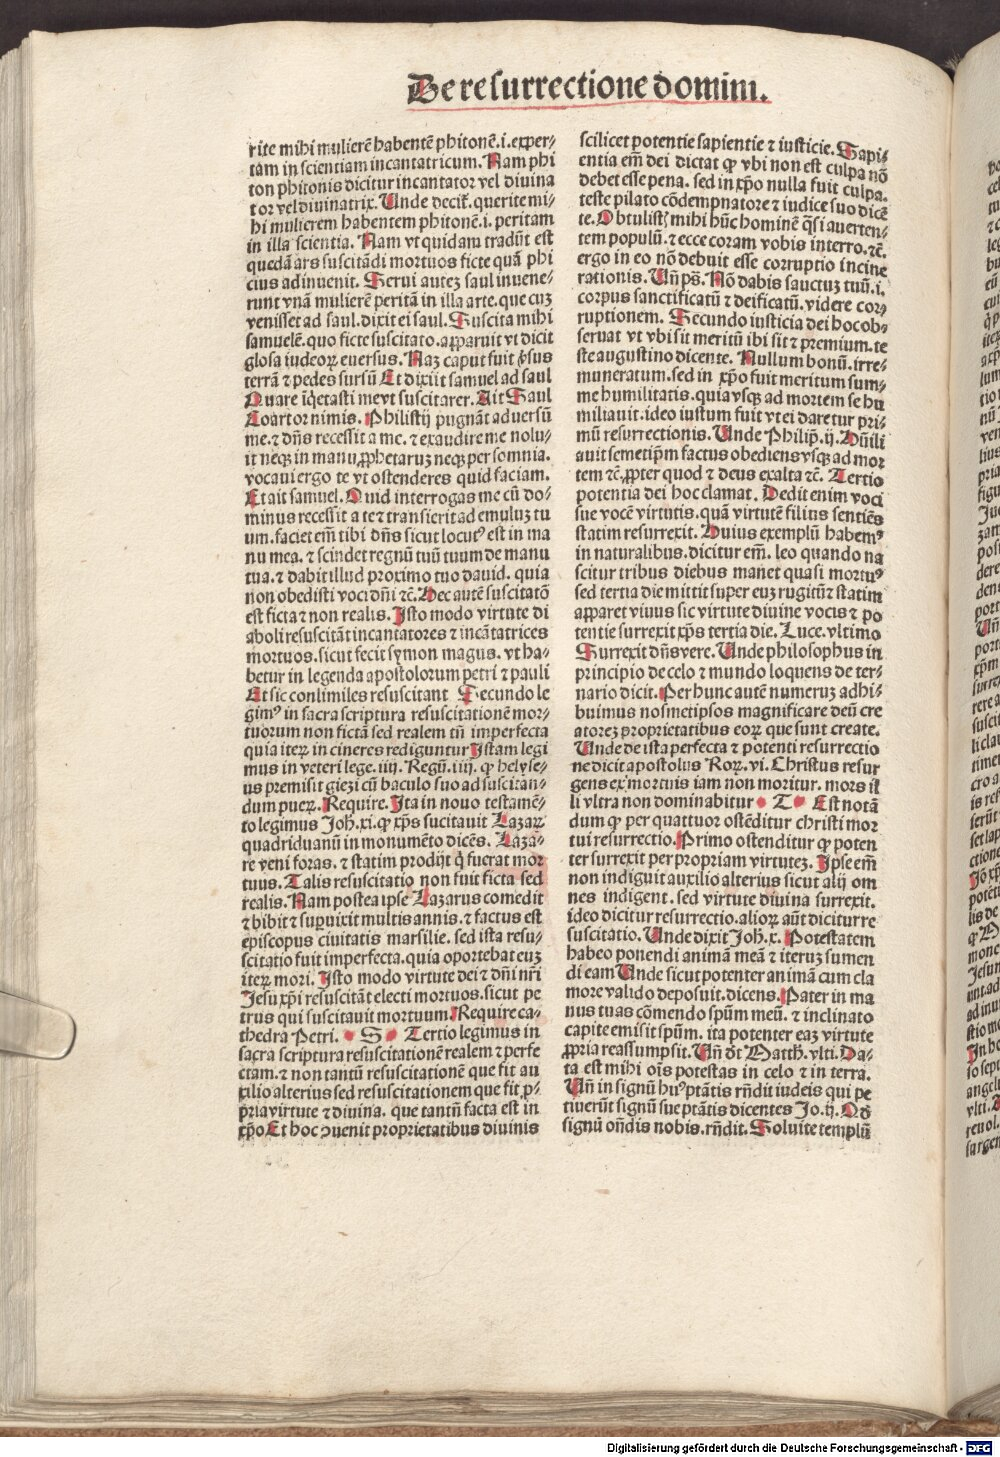 De resurrectione domini.
rite mihi mulierē habentē phitonē.i.exper⸗
tam in scientiam incantatricum. Nam phi
ton phitonis dicitur incantator vel diuina
tor vel diuinatrix. Unde decit̄. querite mi⸗
hi mulierem habentem phitonē.i. peritam
in illa scientia. Nam vt quidam tradūt est
quedā ars suscitādi mortuos ficte quā phi
cius adinuenit. Serui autez saul inuene⸗
runt vnā mulierē peritā in illa arte. que cuz
venisset ad saul. dixit ei saul. Suscita mihi
samuelē. quo ficte suscitato. apparuit vt dicit
glosa iudeoꝝ euersus. Naz caput fuit ꝟsus
terrā ⁊ pedes sursū Et dixit samuel ad saul
Quare iq̇etasti me vt suscitarer. Ait Saul
Coartor nimis. Philistij pugnāt aduersū
me. ⁊ dn̄s recessit a me. ⁊ exaudire me nolu⸗
it neqꝫ in manu ꝓphetaruz neqꝫ per somnia.
vocaui ergo te vt ostenderes quid faciam.
Et ait samuel. Quid interrogas me cū do⸗
minus recessit a te ⁊ transierit ad emuluz tu
um. faciet em̄ tibi dn̄s sicut locutꝰ est in ma
nu mea. ⁊ scindet regnū tuū tuum de manu
tua. ⁊ dabit illud proximo tuo dauid. quia
non obedisti voci dn̄i ⁊c̄. Hec autē suscitatō
est ficta ⁊ non realis. Isto modo virtute di
aboli resuscitāt incantatores ⁊ incātatrices
mortuos. sicut fecit symon magus. vt ha⸗
betur in legenda apostolorum petri ⁊ pauli
Et sic consimiles resuscitant Secundo le
gimꝰ in sacra scriptura resuscitationē mor⸗
tuorum non fictā sed realem tn̄ imperfecta
quia iteꝝ in cineres rediguntur Istam legi
mus in veteri lege. iiij. Regū. iiij. ꝙ helyse⸗
us premisit giezi cū baculo suo ad suscitan⸗
dum pueꝝ. Require. Ita in nouo testamē⸗
to legimus Joh̄. xi. ꝙ xp̄s sucitauit Lazaꝝ
quadriduanū in monumēto dicēs. Laza⸗
re veni foras. ⁊ statim prodijt q̇ fuerat mor
tuus. Talis resuscitatio non fuit ficta sed
realis. Nam postea ipse Lazarus comedit
⁊ bibit ⁊ supuixit multis annis. ⁊ factus est
episcopus ciuitatis marsilie. sed ista resu⸗
scitatio fuit imperfecta. quia oportebat euz
iteꝝ mori. Isto modo virtute dei ⁊ dn̄i nr̄i
Jesu xp̄i resuscitāt electi mortuos. sicut pe
trus qui suscitauit mortuum. Require ca⸗
thedra Petri. S Tertio legimus in
sacra scriptura resuscitationē realem ⁊ perfe
ctam. ⁊ non tantū resuscitationē que fit au
xilio alterius sed resuscitationem que fit ꝓ⸗
pria virtute ⁊ diuina. que tantū facta est in
xp̄o Et hoc ꝯuenit proprietatibus diuinis
scilicet potentie sapientie ⁊ iusticie. Sapi⸗
entia em̄ dei dictat ꝙ vbi non est culpa nō
debet esse pena. sed in xp̄o nulla fuit culpa.
teste pilato cōdempnatore ⁊ iudice suo dicē
te. Obtulistꝫ mihi hūc hominē q̄si auerten⸗
tem populū. ⁊ ecce coram vobis interro. ⁊c̄.
ergo in eo nō debuit esse corruptio incine
rationis. Un̄ ps̄. Nō dabis sanctuz tuū .i.
corpus sanctificatū ⁊ deificatū. videre cor⸗
ruptionem. Secundo iusticia dei hoc ob⸗
seruat vt vbi sit meritū ibi sit ⁊ premium. te
ste augustino dicente. Nullum bonū. irre⸗
muneratum. sed in xp̄o fuit meritum sum⸗
me humilitatis. quia vsqꝫ ad mortem se hu
miliauit. ideo iustum fuit vt ei daretur pri⸗
mū resurrectionis. Unde Philip̄. ij. Hūili
auit semetip̄m factus obediens vsqꝫ ad mor
tem ⁊c̄. ꝓpter quod ⁊ deus exalta ⁊c̄. Tertio
potentia dei hoc clamat. Dedit enim voci
sue vocē virtutis. quā virtutē filius sentiēs
statim resurrexit. Huius exemplū habemꝰ
in naturalibus. dicitur em̄. leo quando na
scitur tribus diebus manet quasi mortuꝰ
sed tertia die mittit super euz rugitū ⁊ statim
apparet viuus sic virtute diuine vocis ⁊ po
tentie surrexit xp̄s tertia die. Luce. vltimo
Surrexit dn̄s vere. Unde philosophus in
principio de celo ⁊ mundo loquens de ter⸗
nario dicit. Per hunc autē numeruz adhi⸗
buimus nosmetipsos magnificare deū cre
atorez proprietatibus eoꝝ que sunt create.
Unde de ista perfecta ⁊ potenti resurrectio
ne dicit apostolus Roꝝ. vi. Christus resur
gens ex mortuis iam non moritur. mors il
li vltra non dominabitur T Est notā
dum ꝙ per quattuor ostēditur christi mor
tui resurrectio. Primo ostenditur ꝙ poten
ter surrexit per propriam virtutez. Ipse em̄
non indiguit auxilio alterius sicut alij om
nes indigent. sed virtute diuina surrexit.
ideo dicitur resurrectio. alioꝝ aūt dicitur re
suscitatio. Unde dixit Joh̄. x. Potestatem
habeo ponendi animā meā ⁊ iteruz sumen
di eam Unde sicut potenter animā cum cla
more valido deposuit. dicens. Pater in ma
nus tuas cōmendo spūm meū. ⁊ inclinato
capite emisit spūm. ita potenter eaz virtute
ꝓpria reassumpsit. Un̄ dr̄t Matth̄. vlti. Da⸗
ta est mihi oīs potestas in celo ⁊ in terra.
Un̄ in signū huꝰ ptātis rn̄dit iudeis qui pe
tiuerūt signū sue ptātis dicentes Jo. ij. Qd̄
signū on̄dis nobis. rn̄dit. Soluite templū
Digitalisierung gefördert durch die Deutsche Forschungsgemeinschaft - DFG